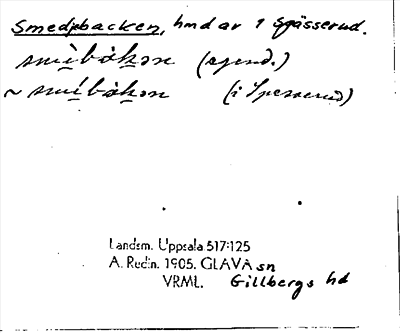 Smedjebacken, hmd av 1 Spässerud.
smìbàkən (sgend.)
~ smíbákən (i Spesserud)
Landsm. Uppsala 517:125
A. Redin. 1905. GLAVA sn
VRML. Gillbergs hd